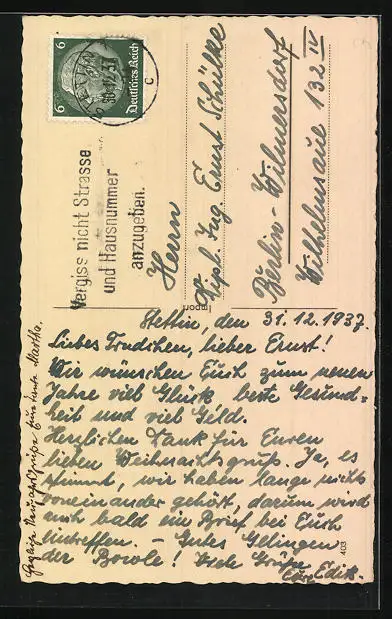 6 Deutsches Reich 6
STETTIN
Vergiss nicht Strasse
und Hausnummer
anzugeben.
Herrn
Dipl. Ing. Ernst Schülke
Berlin-Wilmersdorf
Wilhelmsaue 132 IV
Import
Stettin, den 31.12.1937.
Liebes Trudchen, lieber Ernst!
Wir wünschen Euch zum neuen
Jahre viel Glück, beste Gesund-
heit und viel Geld.
Herzlichen Dank für Euren
lieben Weihnachtsgruß. Ja, es
stimmt, wir haben lange nichts
voneinander gehört, darum wird
auch bald ein Brief bei Euch
eintreffen. – Gutes Gelingen
der Bowle! Viele Grüße
Eure Edith.
Herzliche Neujahrsgrüße Eure Tante Martha.
403